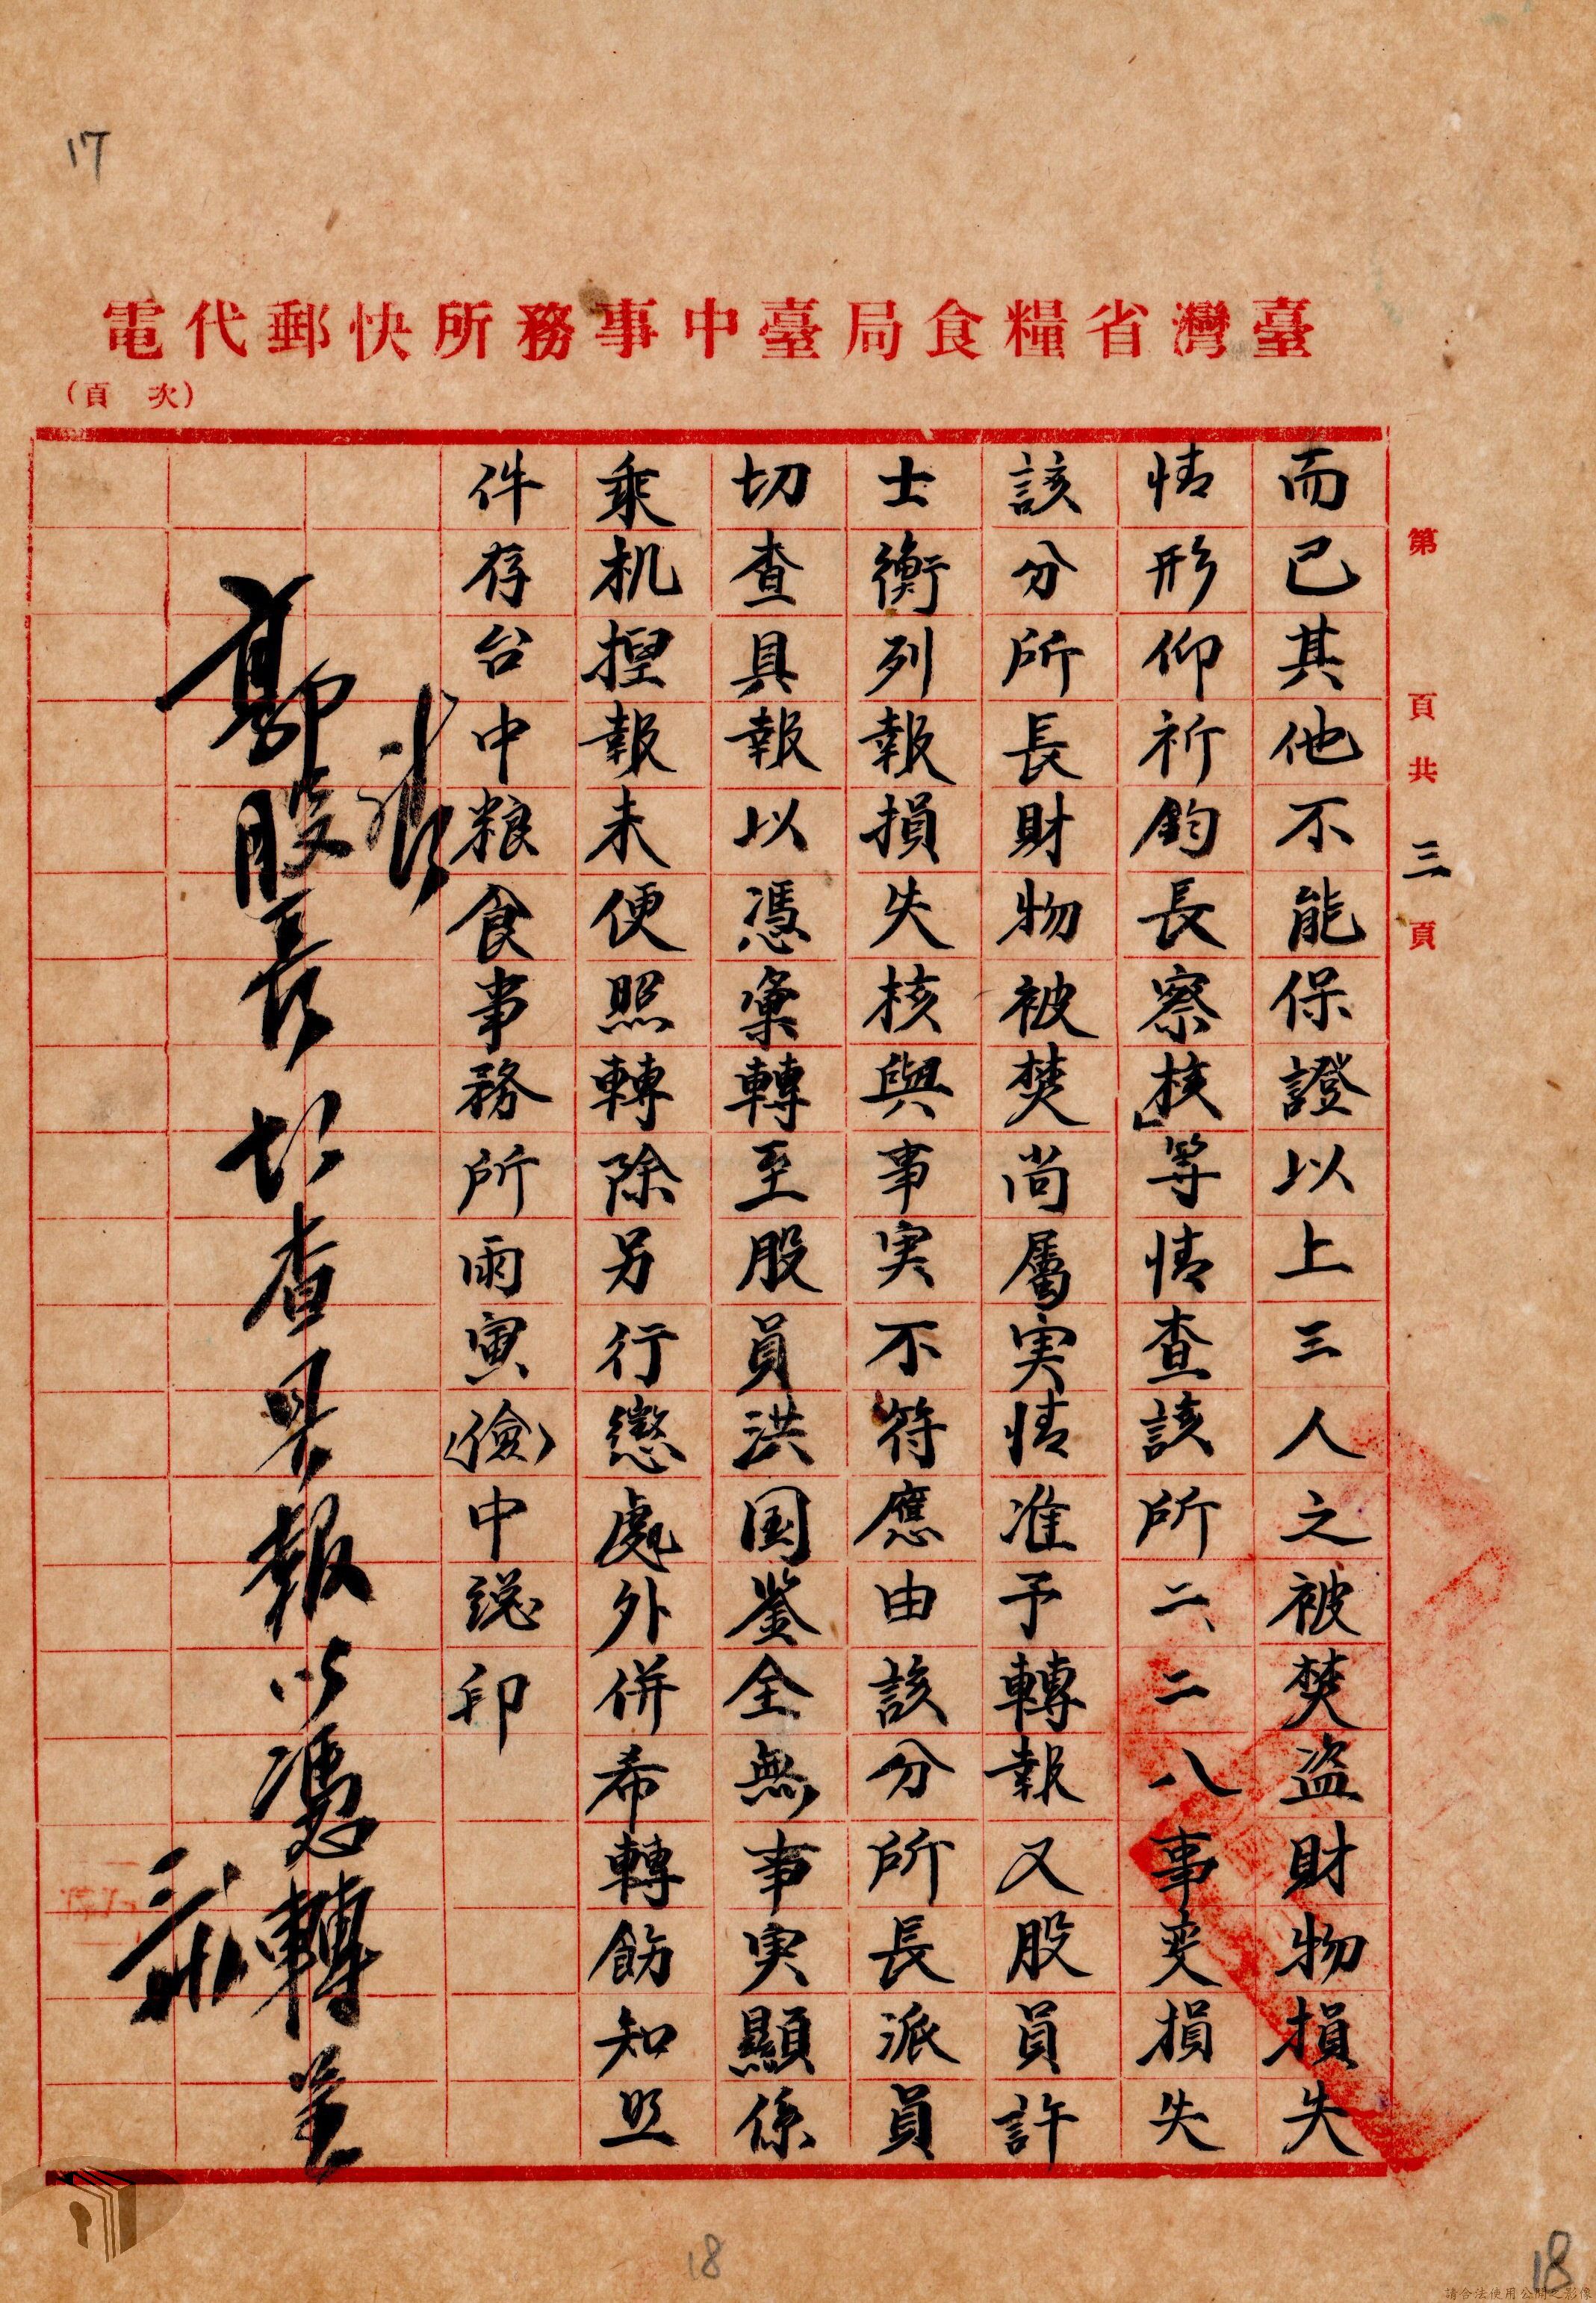 17
臺灣省糧食局臺中事務所快郵代電
(頁次)
第 頁共三頁
而已其他不能保證以上三人之被焚盜財物損失
情形仰祈鈞長察核」等情查該所二、二八事変損失
該分所長財物被焚尚屬実情准予轉報又股員許
士衡列報損失核與事実不符應由該分所長派員
切查具報以憑彙轉至股員洪国鉴全無事実顯係
乘机揑報未便照轉除另行懲處外併希轉飭知照
件存台中粮食事務所雨寅(儉)中總印
郭股長切查具報以憑轉
18
18
請合法使用公開之影像